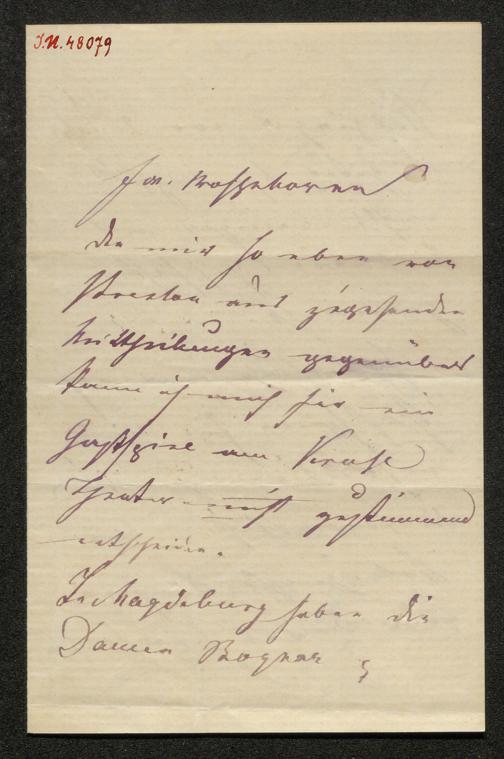 I.N. 48079
Ew. Wohlgeboren
Den mir so eben von
Breslau aus zugesandten
Mittheilungen gegenüber
kann ich mich für ein
Gastspiel am
Theater nicht zustimmend
entscheiden.
In Magdeburg haben die
Damen Bognar &